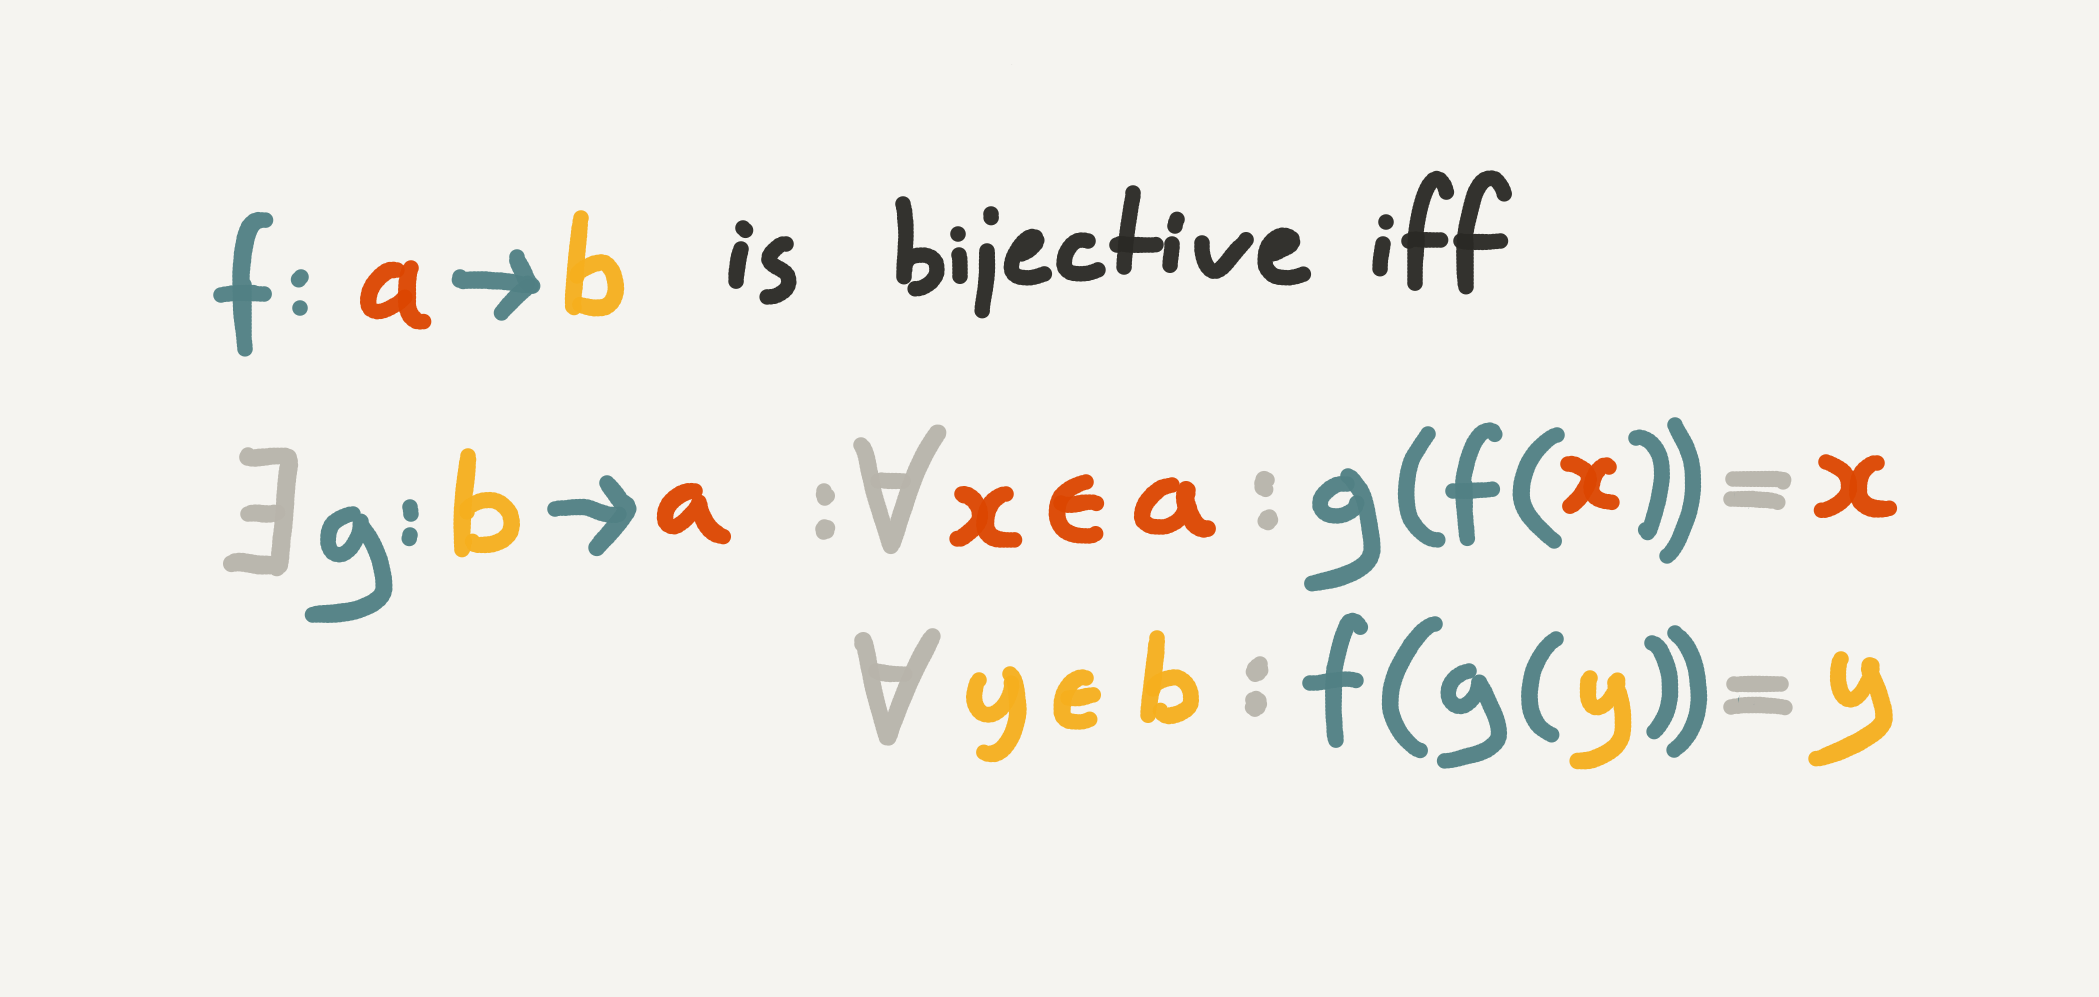 f: a→b is bijective iff
∃g: b→a :∀x∈a : g(f(x))=x
∀y∈b : f(g(y))=y